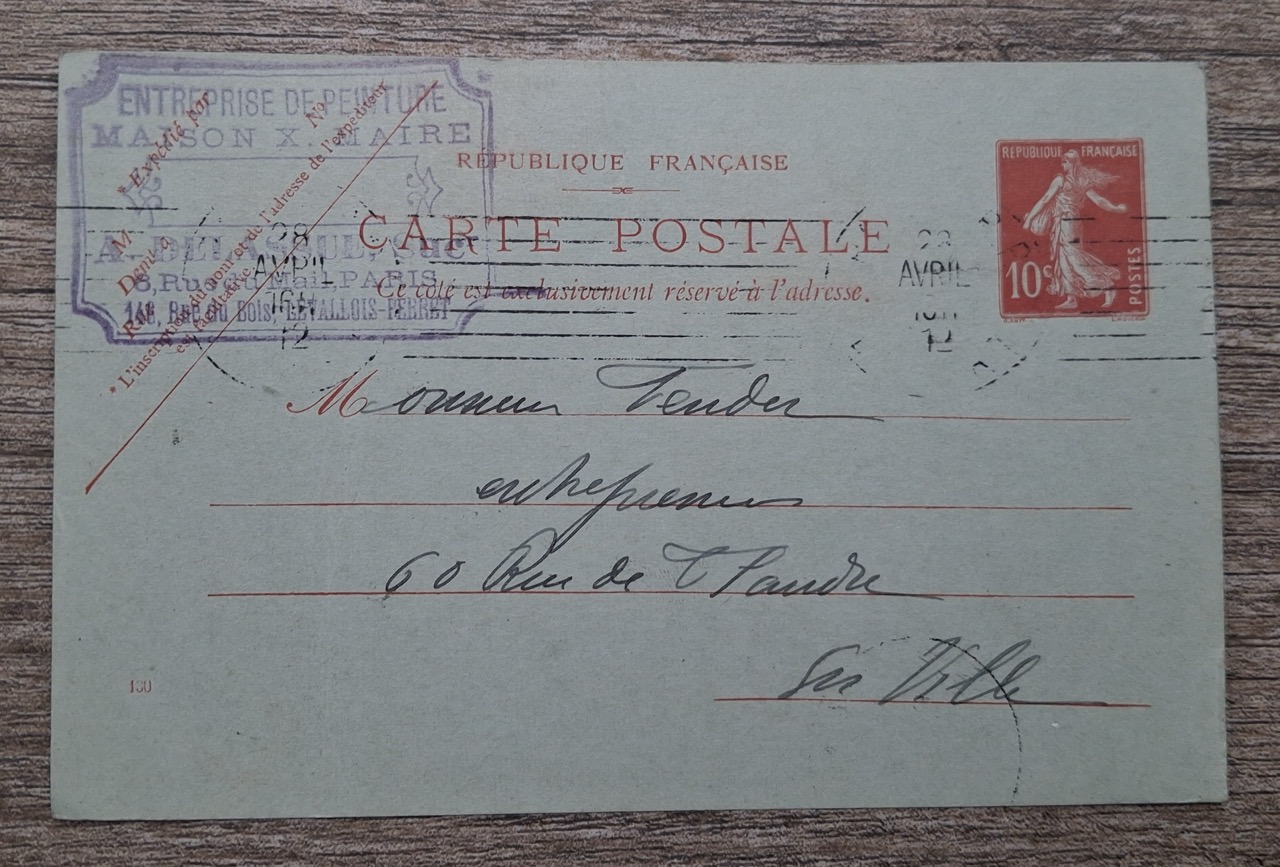 ENTREPRISE DE PEINTURE
MAISON X. MAIRE
8, Rue du Mail. PARIS
148, Rue du Bois, LEVALLOIS-PERRET
* Expédié par
M
Demeurant
Rue
N°
* L'inscription du nom et de l'adresse de l'expéditeur
est facultative.
RÉPUBLIQUE FRANÇAISE
CARTE POSTALE
Ce côté est exclusivement réservé à l'adresse.
RÉPUBLIQUE FRANÇAISE
10c
POSTES
28
AVRIL
12
AVRIL
12
Monsieur Tender
entrepreneur
60 Rue de Flandre
En Ville
130